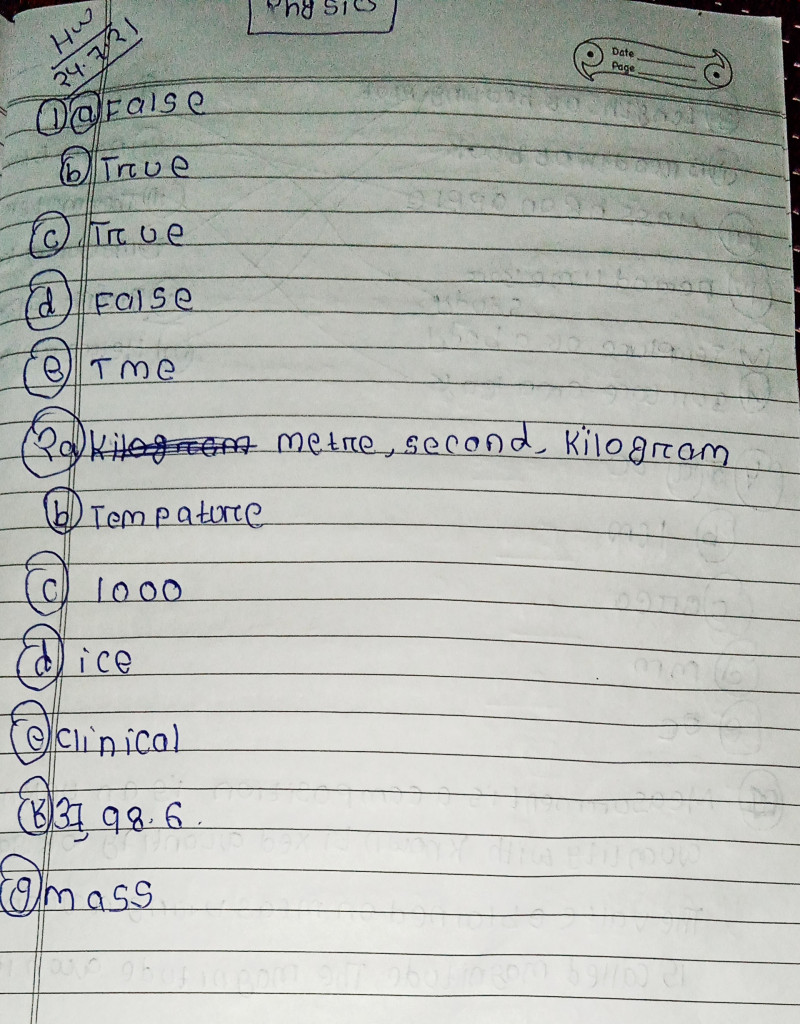 Physics
HW
24.7.21
Date
Page
① ⓐ False
ⓑ True
ⓒ True
ⓓ False
ⓔ Tme
2a metre, second, Kilogram
ⓑ Tempature
ⓒ 1000
ⓓ ice
ⓔ clinical
37, 98.6.
ⓖ mass